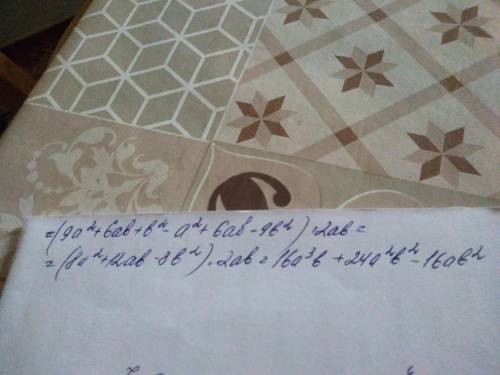 =(9a²+6ab+b²-a²+6ab-9b²)·2ab=
=(8a²+12ab-8b²)·2ab=16a³b+24a²b²-16ab²